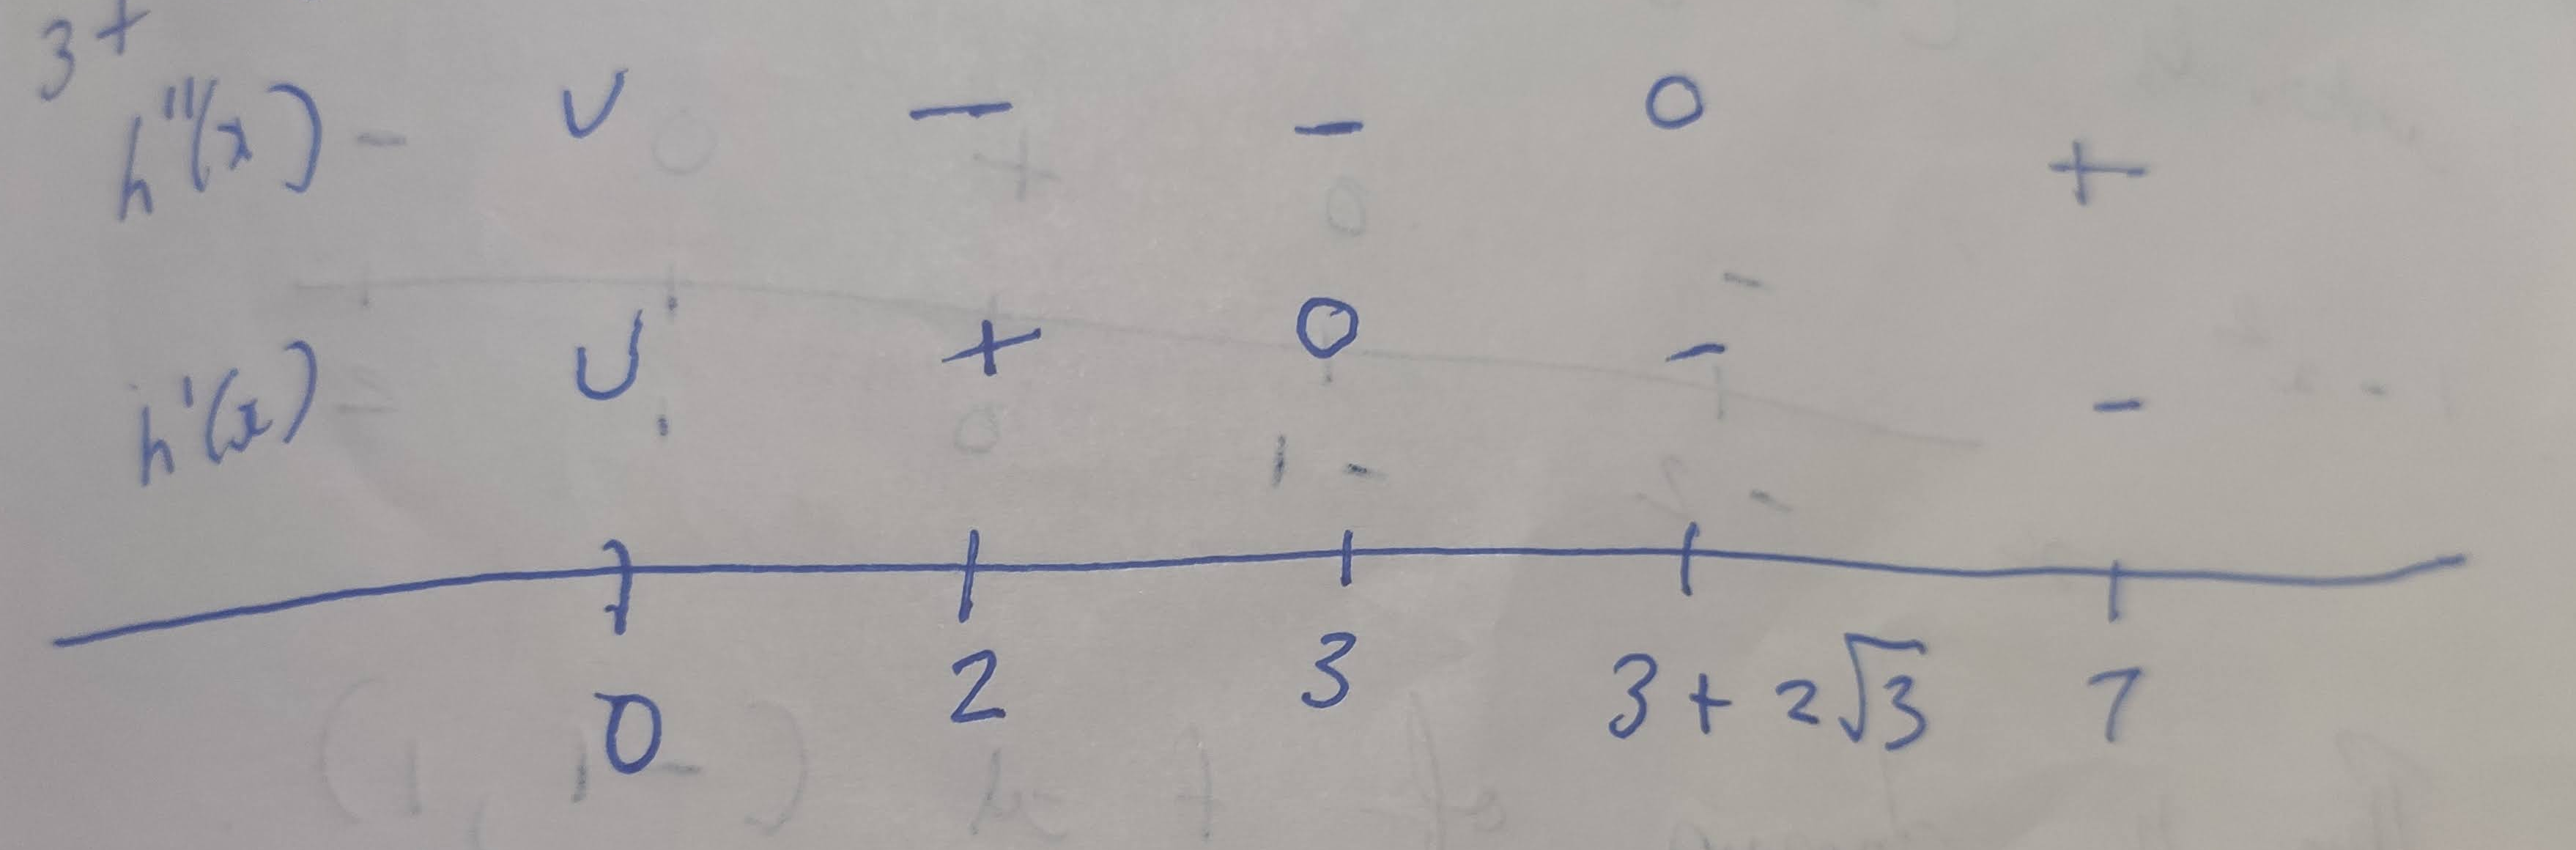 3+
h''(x) - U - - 0 +
h'(x) - U + 0 - -
0 2 3 3 + 2√3 7